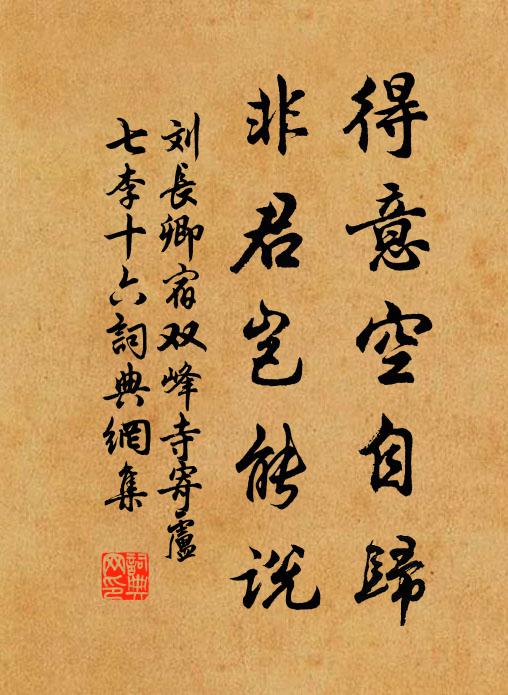 得意空自歸
非君岂能説
刘長卿宿双峰寺寄盧
七李十六詞典網集
詞典
网印